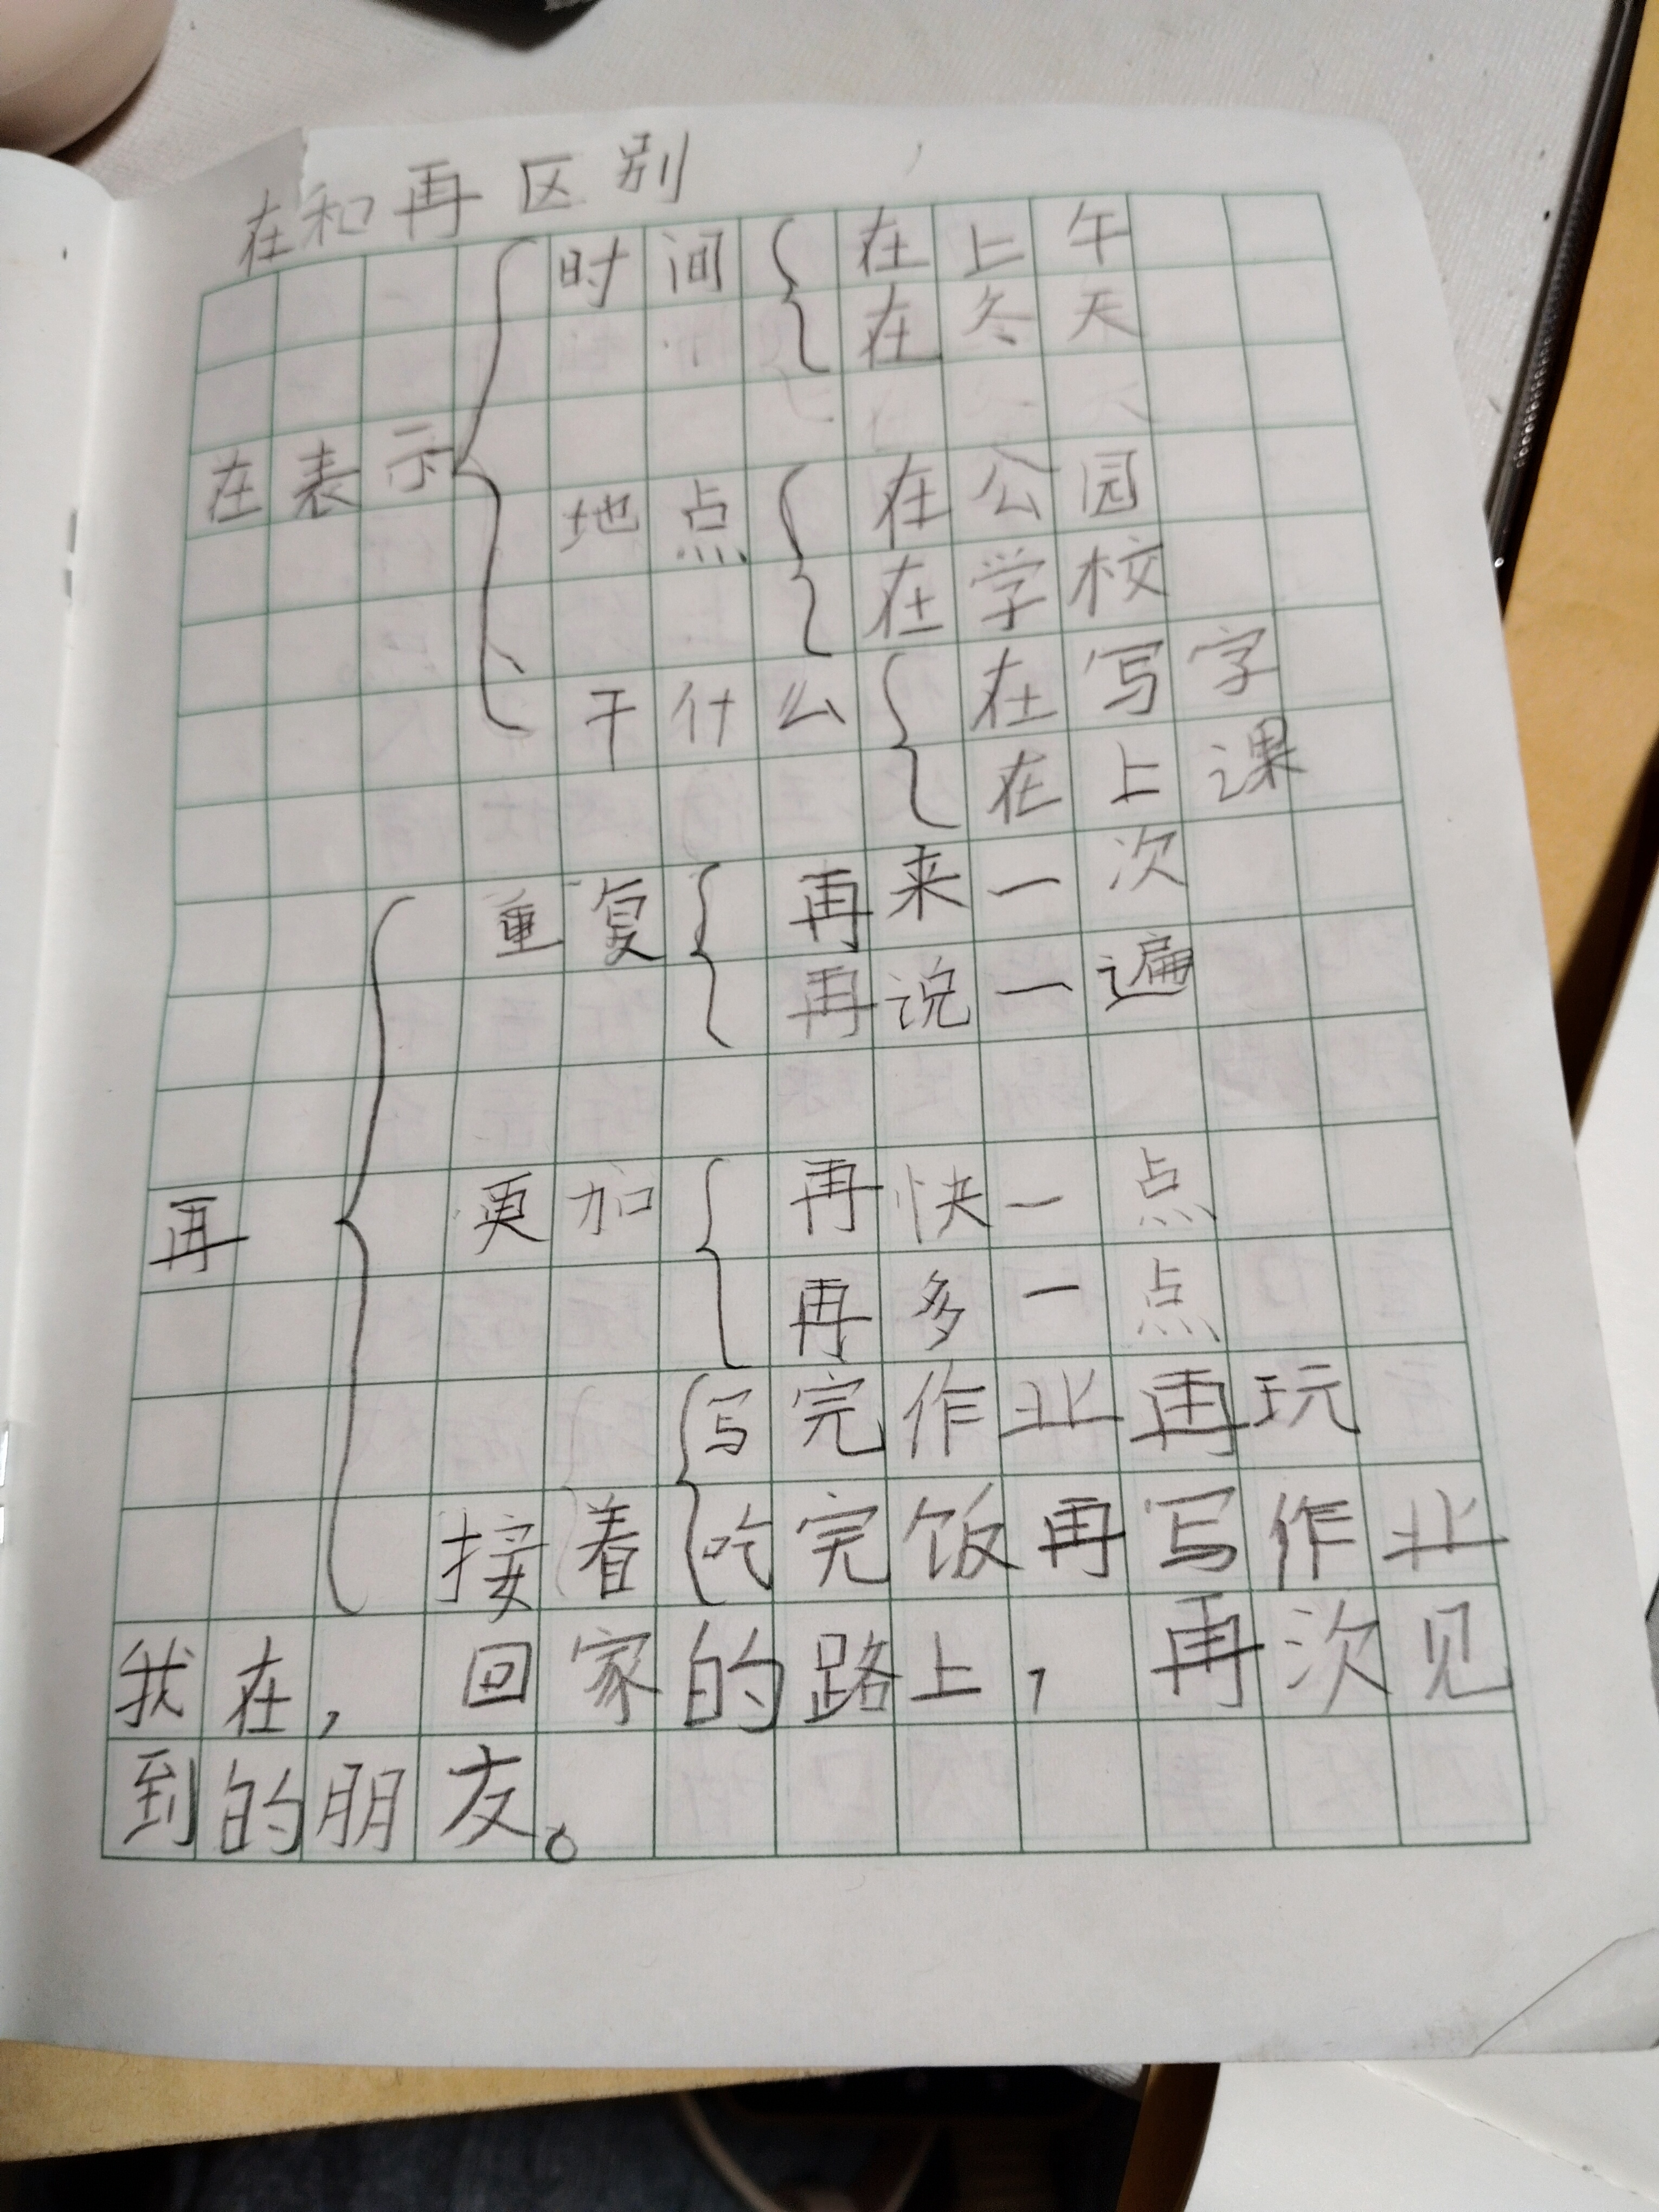 在和再区别
时间{在上午
在冬天
在表示{
地点{在公园
在学校
干什么{在写字
在上课
重复{再来一次
再说一遍
再{更加{再快一点
再多一点
写完作业再玩
接着{吃完饭再写作业
我在，回家的路上，再次见
到的朋友。